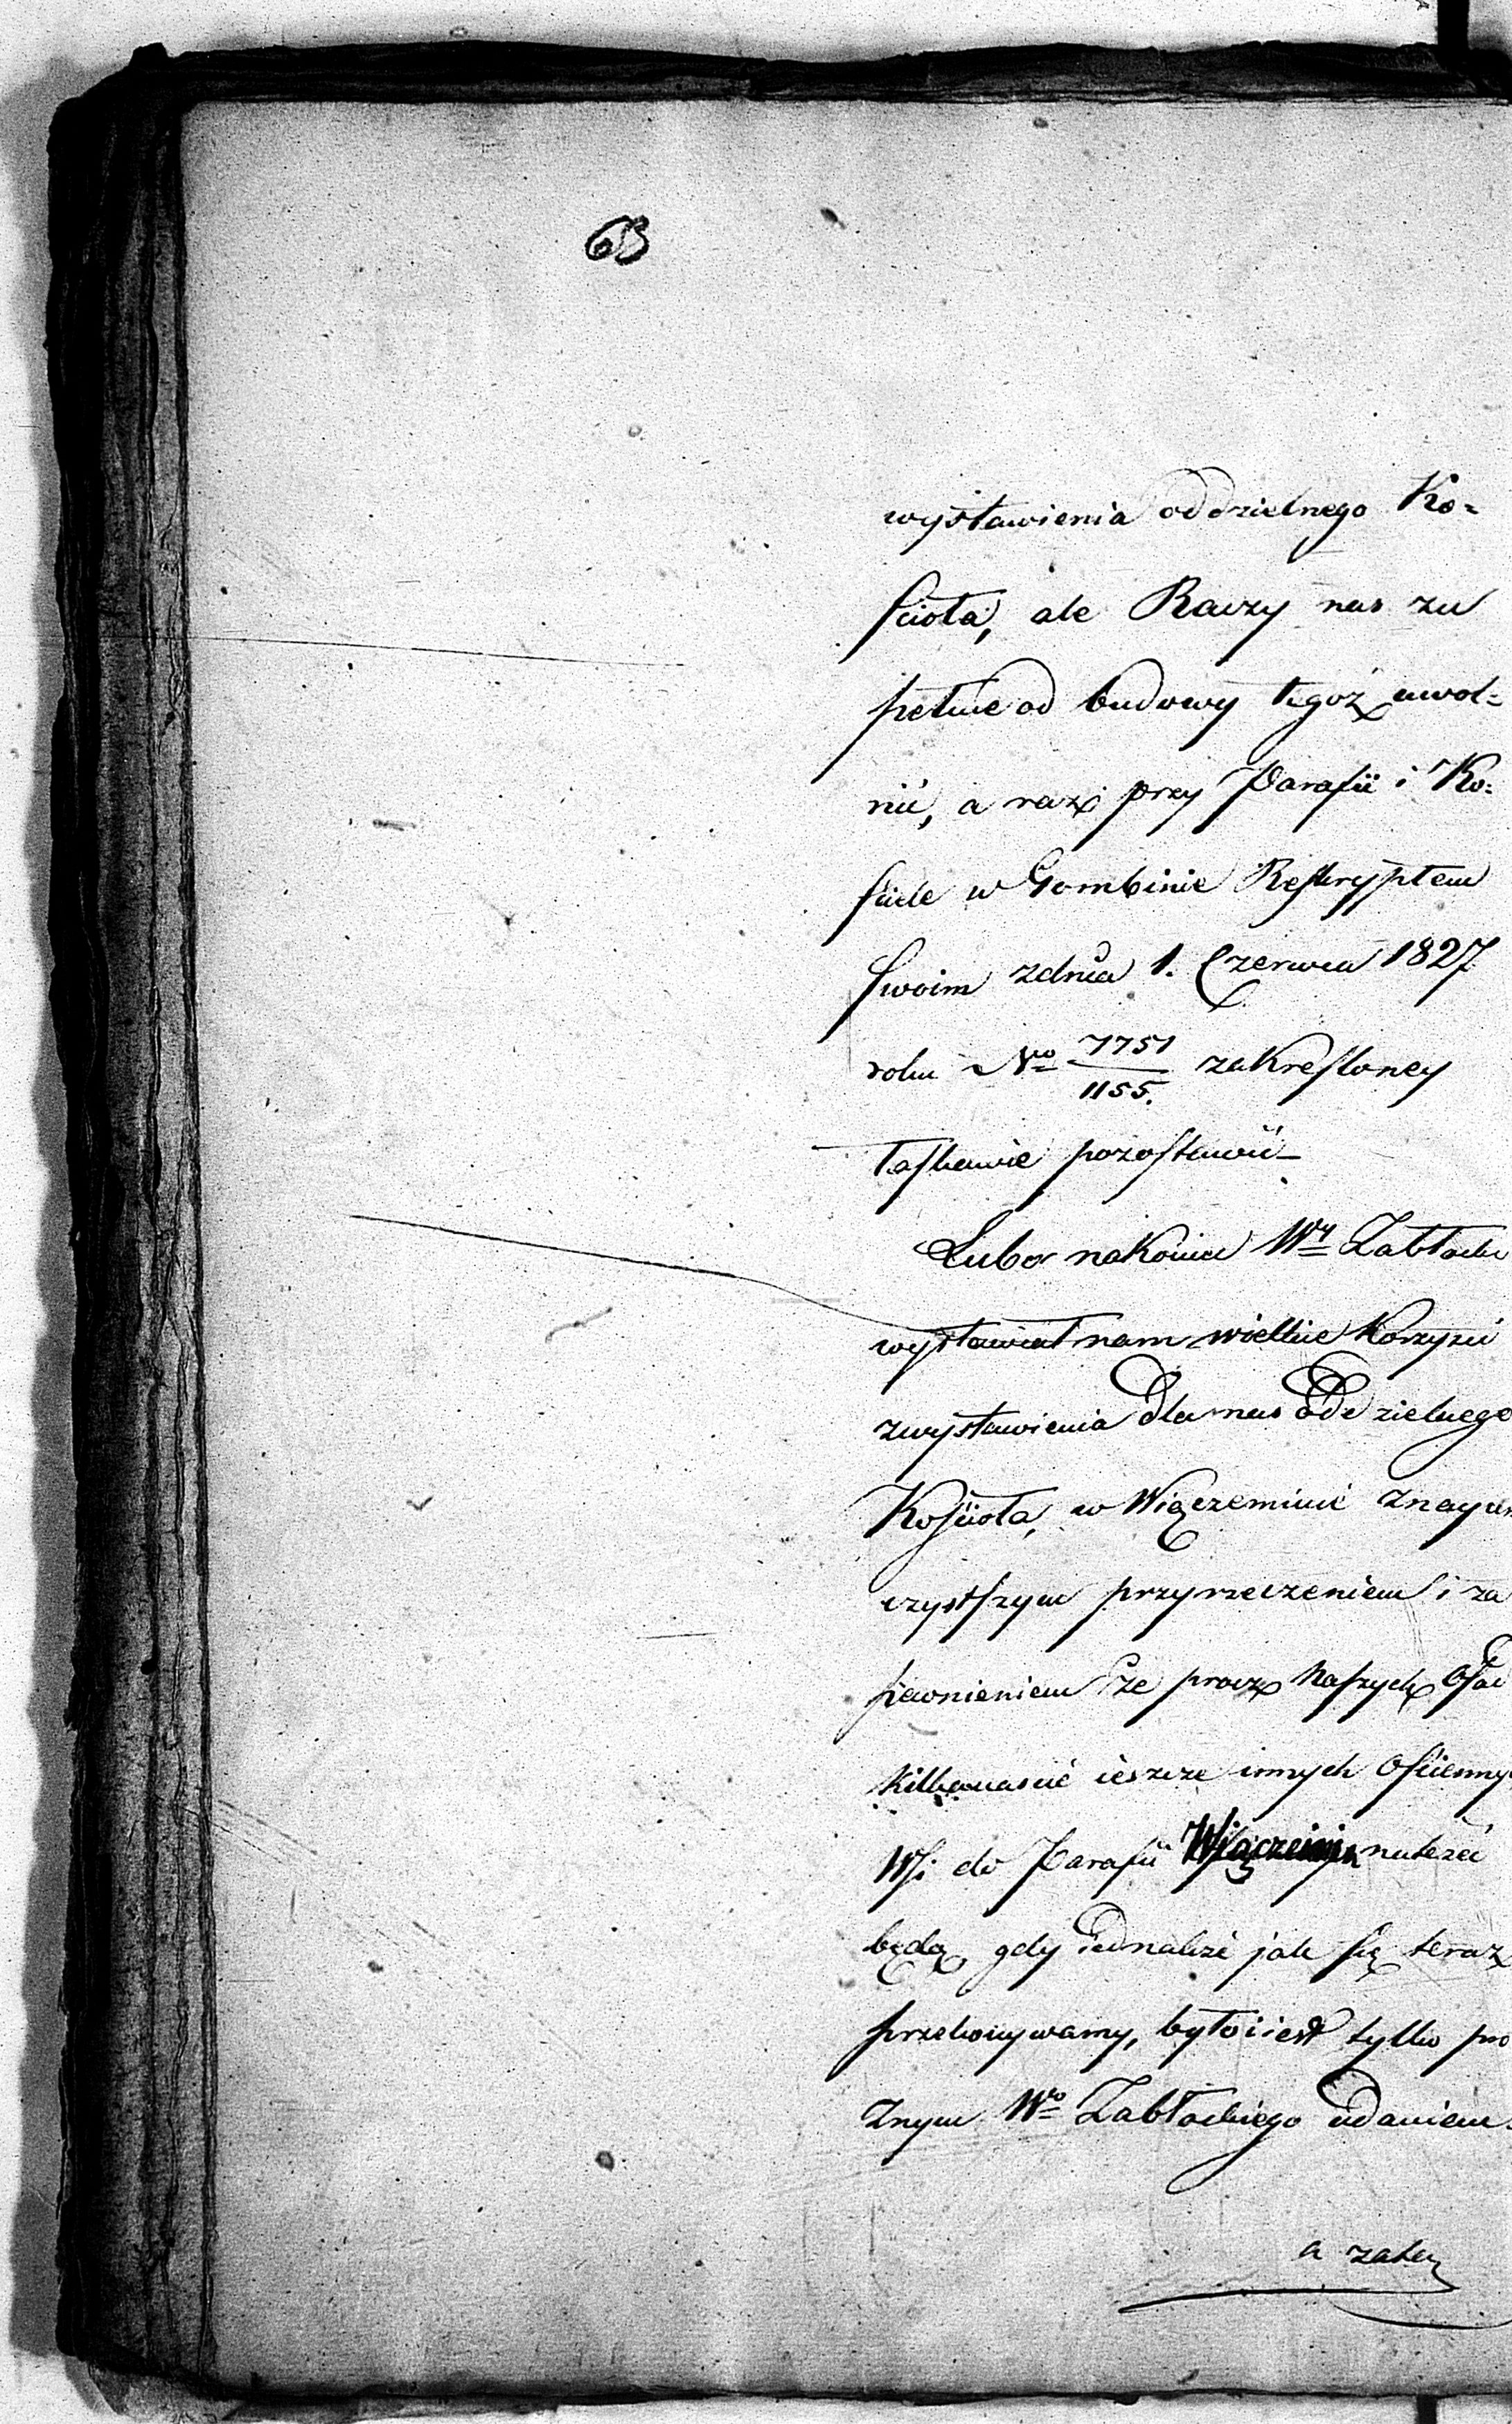 63
wystawienia oddzielnego Ko=
ścioła, ale Raczy nas zu
pełnie od budowy tegoż uwol=
nić, a nas przy Parafii i Ko=
ściele w Gombinie Reskryptem
Swoim z dnia 1. Czerwca 1827
roku Nro 7751/1155. zakreśloney
łaskawie pozostawić_
Lubo nakoniec Wy Zabłocki
wystawiał nam wielkie Korzyści
z wystawienia dla nas oddzielnego
Kościoła, w Wiączeminie z nayu
czystszym przyrzeczeniem i za
pewnieniem że prócz Naszych Osad
Kilkanaście ieszcze innych Ościenny
Wsi do Parafii Wiączemin należeć
będą, gdy iednakże jak się teraz
przekonywamy, było i iest tylko pro
żnym Wo Zabłockiego udaniem
a zatem